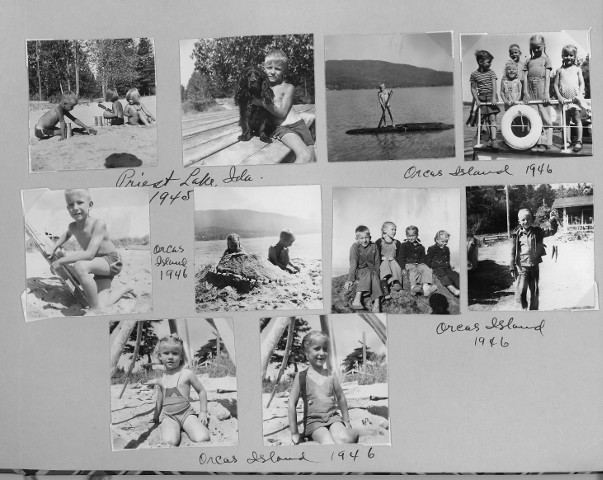 Priest Lake, Ida.
1945
Orcas Island 1946
Orcas
Island
1946
Orcas Island
1946
Orcas Island 1946